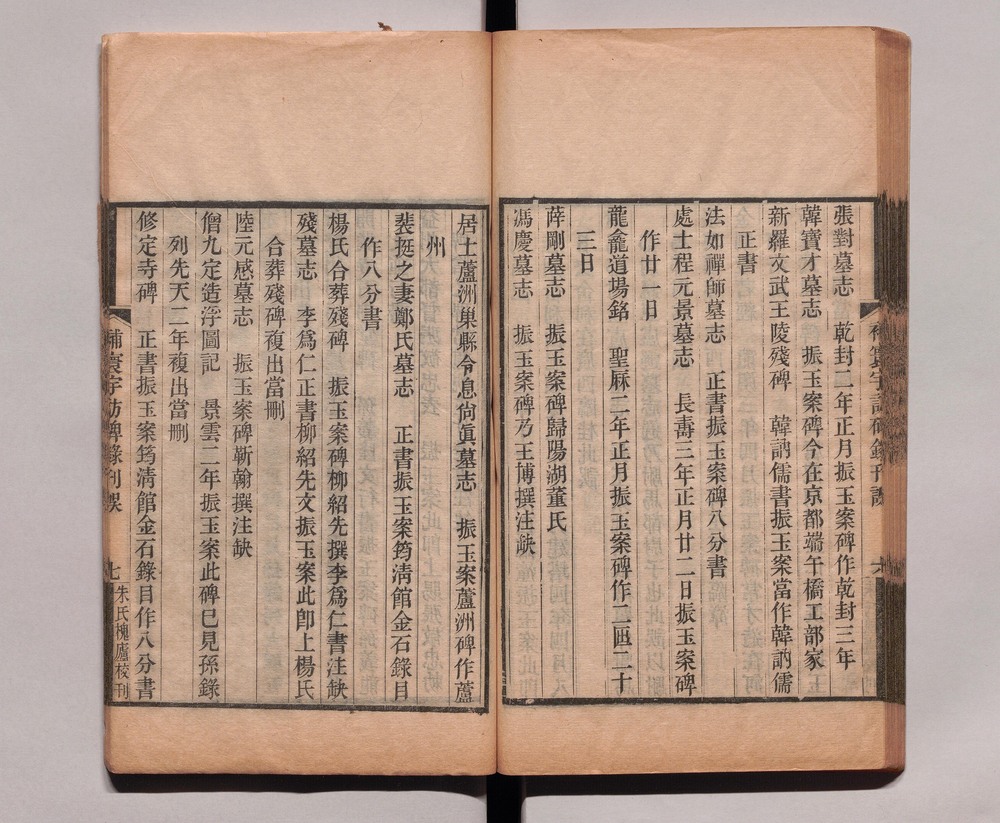 張對墓志　乾封二年正月振玉案碑作乾封三年
韓寶才墓志　振玉案碑今在京都端午橋工部家
新羅文武王陵殘碑　韓訥儒書振玉案當作韓訥儒
正書
法如禪師墓志　正書振玉案碑八分書
處士程元景墓志　長壽三年正月廿二日振玉案碑
作廿一日
龍龕道場銘　聖厤二年正月振玉案碑作二𠥱二十
三日
薛剛墓志　振玉案碑歸陽湖董氏
馮慶墓志　振玉案碑乃王博撰注缺
居士蘆洲巢縣令息尙眞墓志　振玉案蘆洲碑作蘆
州
裴挺之妻鄭氏墓志　正書振玉案筠淸館金石錄目
作八分書
楊氏合葬殘碑　振玉案碑柳紹先撰李爲仁書注缺
殘墓志　李爲仁正書柳紹先文振玉案此卽上楊氏
合葬殘碑複出當刪
陸元感墓志　振玉案碑靳翰撰注缺
僧九定造浮圖記　景雲二年振玉案此碑已見孫錄
列先天二年複出當刪
修定寺碑　正書振玉案筠淸館金石錄目作八分書
補寰宇訪碑錄刊誤
七
朱氏槐廬校刊